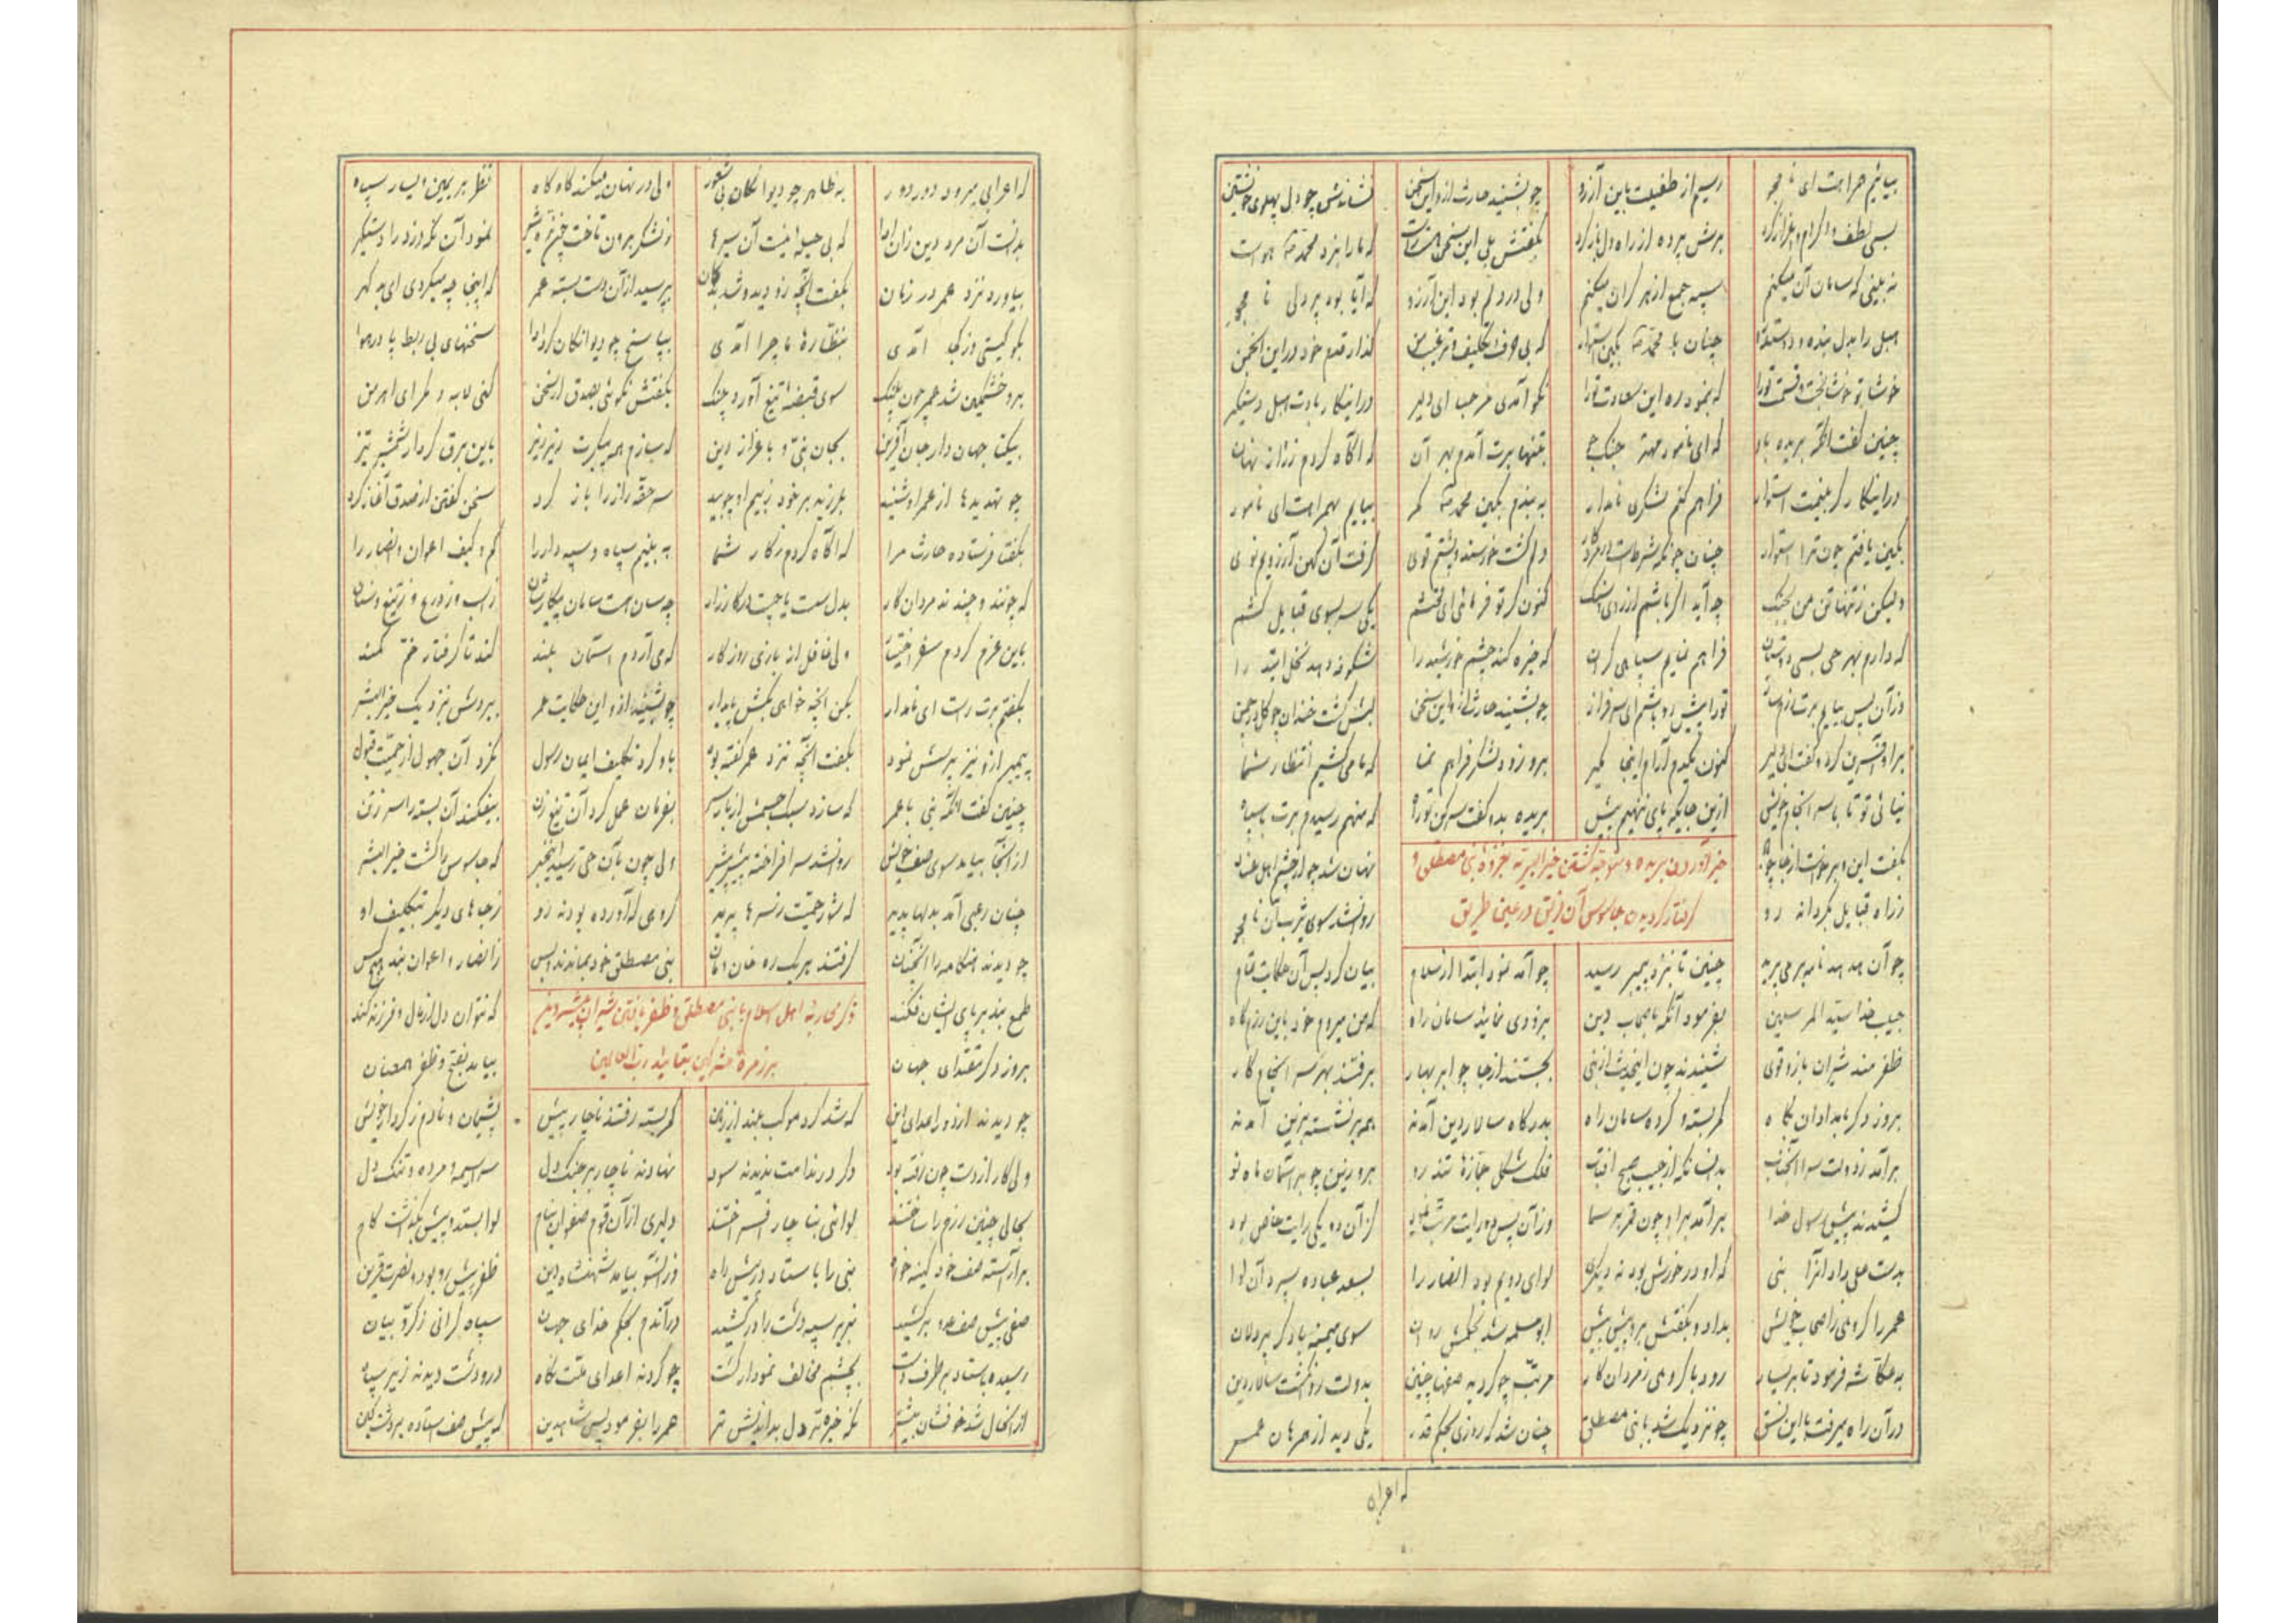 بیائیم همراهت ای نامجو رسیم از طفیلت باین آرزو چو بشنید حارث ازو این سخن نشاندش چو دل پهلوی خویشتن
بسی لطف و اکرام و اعزاز کرد برش پرده از راه دل باز کرد بگفتش بلی این سخن راست که ما را نبرد محمد هواست
نه بینی که سامان آن میکنم سپه جمع از هر کران میکنم ولی در دلم بود این آرزو که آیا بود پر دلی نامجو
که بی حرف تکلیف و ترغیب من گذارد قدم خود در این انجمن
خوشا بتو خوش بخت و قسمت ترا که بنمود ره این سعادت ترا نکو آمدی مرحبا ای دلیر
چنین گفت آنگه بریده باو که ای نامور مهتر جنگجو بتنها برت آمدم بهر آن که آگاه کردم ز راز نهان
فراهم کنم لشکری نامدار به بندم بکین محمد کمر بیایم بهمراهت ای نامور
بکین یافتم چون ترا استوار دلم گشت خورسند و پشتم قوی گرفت آن کهن آرزویم نوی
ولیکن ز تنها تن من بجنگ چه آید اگر باشم از روی سنگ کنون گر تو فرمائی ای محتشم یکی سر بسوی قبایل کشم
فراهم نمایم سپاهی گران که خیره کند چشم خورشید را شکوفه دهد نخل امید را
وز آن پس بیایم برت تورا پیش رو باشم ای سرفراز چو بشنید حارث ازو این سخن لبش گشت خندان چو گل در چمن
بر او آفرین کرد و گفت ای دلیر کنون یکدم آرام اینجا مگیر برو زود لشکر فراهم نما که ما می کشیم انتظار شما
نیائی تو تا با سرانجام خویش ازین جایگه پای ننهیم پیش بریده بدو گفت که منهم رسیدم برت با سپاه
بگفت این و برخواست از جا چو نهان شد چو از چشم اهل عناد
خبر آوردن بریده و متوجه گشتن خیر البریه بغزوه بنی مصطلق و
ز راه قبایل بگردانه رو روان شد سوی یثرب آن نامجو
گرفتار گردیدن جاسوس آن فریق در عین طریق
چو آن هدهد نامه بر می پرید چنین تا بنزد پیمبر رسید چو آمد نمود ابتدا از سلام بیان کرد پس آن حکایت تمام
حبیب خدا سید المرسلین بفرمود آنگه باصحاب دین بزودی نمائید سامان راه که من میروم خود باین رزمگاه
ظفرمند شیران بازو قوی شنیدند چون اینحدیث از نبی بجستند از جا چو ابر بهار برفتند بهر سرانجام کار
بروز دگر بامدادان پگاه کمر بسته و کرده سامان راه بدرگاه سالار دین آمدند همه بر نشسته بزین آمدند
برآمد ز دولت سرا آنجناب بدانسان که از جیب صبح آفتاب فلک شکل جمازه تند رو برو زین چو بر آسمان ماه نو
کشیدند پیش رسول خدا برآمد برو چون قمر بر سما وز آن پس دو رایت مرتب نمود کز آن دو یکی رایت خاص بود
بدست علی داد آنرا نبی که او در خورش بود نه دیگری لوای دویم بود انصار را بسعد عباده سپرد آن لوا
عمر را گروهی ز اصحاب خویش بداد و بگفتش برو پیش پیش ابوسلمه شد بحکمش روان سوی میمنه با دگر پردلان
به عکاشه فرمود تا بر یسار رود با گروهی ز مردان کار مرتب چو گردید صفها چنین بدولت روان گشت سالار دین
در آن راه میرفت با این نسق چو نزدیک شد با بنی مصطلق چنان شد که روزی بحکم قدر یکی دید از همرهان عمر
که اعرابی
که اعرابی میرود دور دور به ظاهر چو دیوانگان بی شعور ولی در نهان میکند گاه گاه نظر بر یمین و یسار سپاه
بدانست آن مرد دین زان ادا که بی حیله نیست آن سیرها ز لشکر برون تاخت نمود آن نکو مرد را دستگیر
بیاورد نزد عمر در زمان بگفت آنچه زو دید و شد بدگمان بپرسید از آن دست بسته عمر که اینجا چه میکردی ای بد گهر
بگو کیستی وز کجا آمدی بنظاره ما چرا آمدی بپاسخ چو دیوانگان کرد ادا سخنهای بی ربط پا در هوا
برو خشمگین شد عمر چون پلنگ سوی قبضه تیغ آورد چنگ بگفتش نگوئی بصدق ار سخن کنی لابه و مکر ای اهرمن
بیکتا جهاندار جان آفرین بجان نبی و باعزاز دین که سازم همه پیکرت ریز ریز باین برق کردار شمشیر تیز
چو تهدیدها از عمر او شنید بلرزید بر خود ز بیم او چو بید سر حقه راز را باز کرد سخن گفتن از صدق آغاز کرد
بگفتا فرستاده حارث مرا که آگاه کردم ز کار شما به بینم سپاه و سپه دار را کم و کیف اعوان و انصار را
که چونند و چندند مردان کار چه سان است سامان پیکارشان ز اسب و ز درع و ز تیغ و سنان
باین عزم کردم سفر اختیار ولی غافل از بازی روزگار که می آردم آسمان بلند کند تا گرفتار خم کمند
بگفتم برت راست ای نامدار بکن آنچه خواهی بکش یا بدار چو بشنید ازو این حکایت عمر ببردش بنزدیک خیر البشر
پیمبر ازو نیز پرسش نمود بگفت آنچه نزد عمر گفته بود باو کرد تکلیف ایمان رسول نکرد آن جهول از حمیت قبول
چنین گفت آنگه نبی با عمر که سازد سبک جسمش از بار سر بفرمان عمل کرد آن تیغ زن بیفکند آن بسته را سر ز تن
از آنجا بیامد سوی صف خویش روان شد سر افراخته پیش پیش ولی چون بآن حی رسید اینخبر که جاسوس را کشت خیر البشر
چنان رعبی آمد بدلها پدید که شور حمیت ز سرها پرید گروهی که آورده بودند رو ز جاهای دیگر بتکلیف او
چو دیدند هنگامه را آنچنان گرفتند هر یک ره خان و مان بنی مصطلق خود بماندند و بس ز انصار و اعوان نبد هیچ کس
طمع بند بر پای ایشان فکند که نتوان دل از مال و فرزند کند
ذکر محاربه اهل اسلام با بنی مصطلق و ظفر یافتن شیران بیشه دین
بروز دگر مقتدای جهان بیامد بفتح و ظفر همعنان
بر زمره مشرکین بتائید رب العالمین
چو دیدند از دور اعدای دین که شد گرد موکب بلند از زمین کمر بسته رفتند ناچار پیش پشیمان و نادم ز کردار خویش
ولی کار از دست چون رفته بود دگر در ندامت ندیدند سود نهادند ناچار بر جنگ دل سراسیمه و مرده و تنگ دل
بحالی چنین رزم را ساختند لوائی بناچار افراختند دلیری از آن قوم صفوان بنام لوا بستد و پیش بگذاشت گام
برآراسته صف خود کینه خواه بنی را باستاد در پیش راه وز آنسو بیامد شهنشاه دین ظفر پیش رو بود و نصرت قرین
صفی پیش صف عدو برکشید بزیر سپه دشت را درکشید در آندم بحکم خدای جهان سپاه گرانی ز کروبیان
رسیده باستاد بر طرف دشت بچشم مخالف نمودار گشت چو کردند اعدای ملت نگاه در و دشت دیدند زیر سپاه
از آنحال شد خوفشان بیشتر نگه خیره تر دل بد اندیش تر عمر را بفرمود پس شاه دین که پیش صف استاده